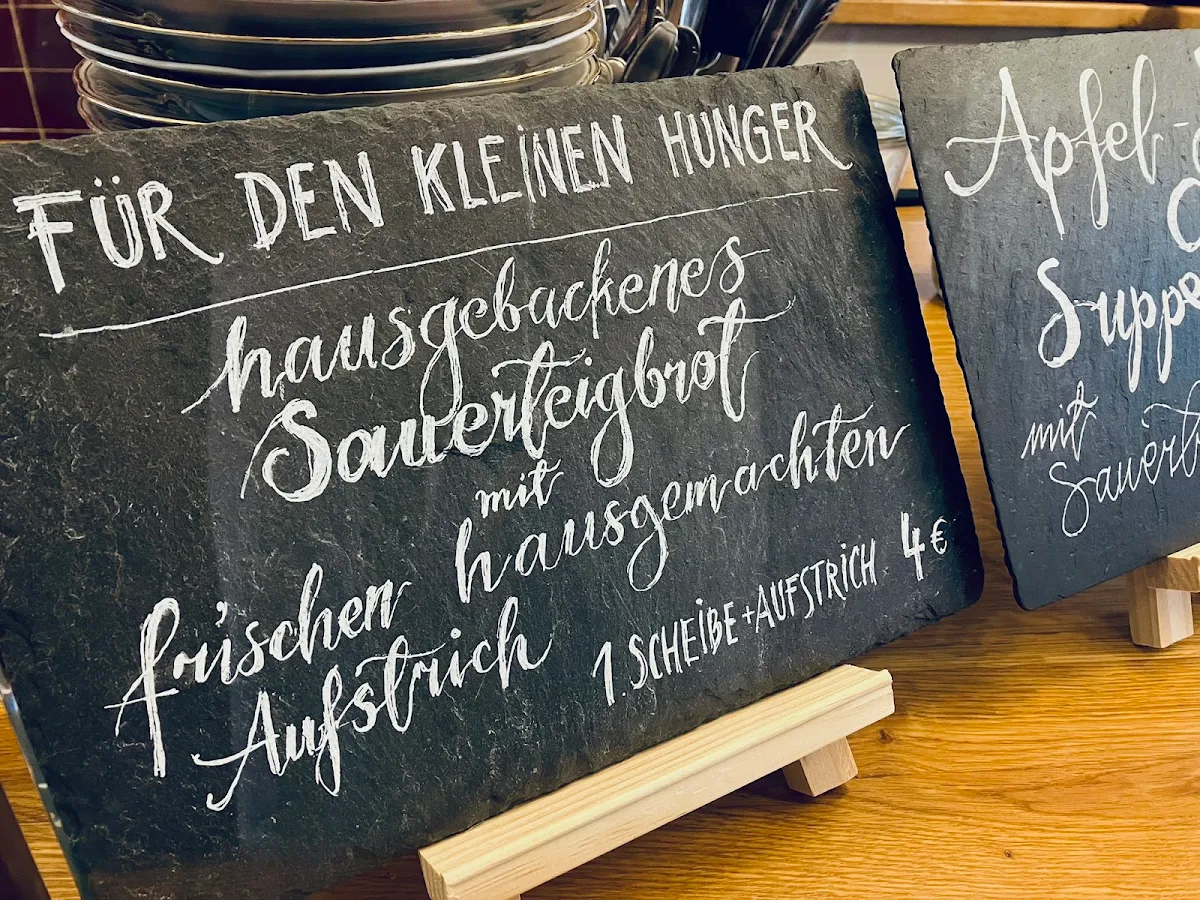 FÜR DEN KLEINEN HUNGER
hausgebackenes
Sauerteigbrot
mit
frischen hausgemachten
Aufstrich
1. SCHEIBE + AUFSTRICH 4 €
Apfel-
Suppe
mit